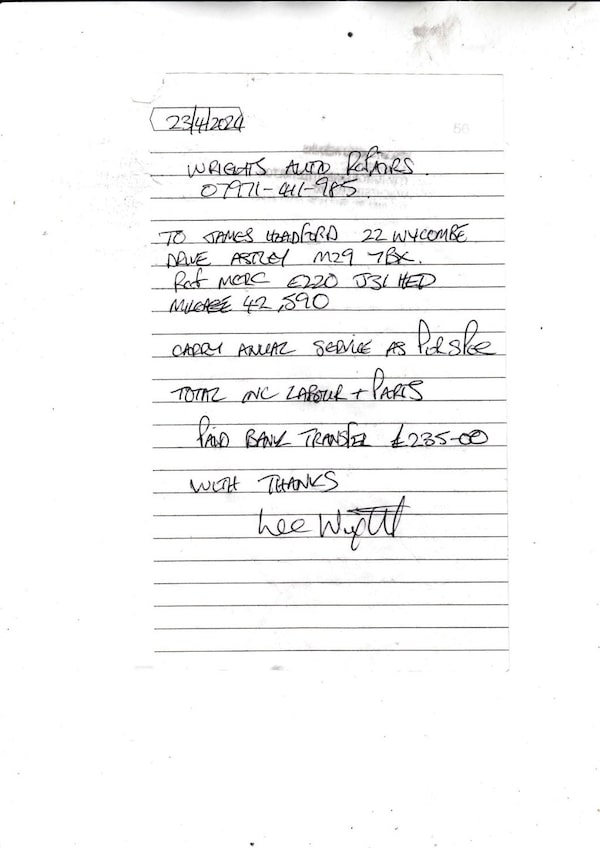 23/4/2024
56
WRIGHTS AUTO REPAIRS.
07971-411-985.
TO JAMES HEADFORD 22 WYCOMBE
DRIVE ASTLEY M29 7BX.
Ref MERC E220 J31 HED
MILEAGE 42,590
CARRY ANUAL SERVICE AS PER SPEC
TOTAL INC LABOUR + PARTS
PAID BANK TRANSFER £235-00
WITH THANKS
Lee Wright